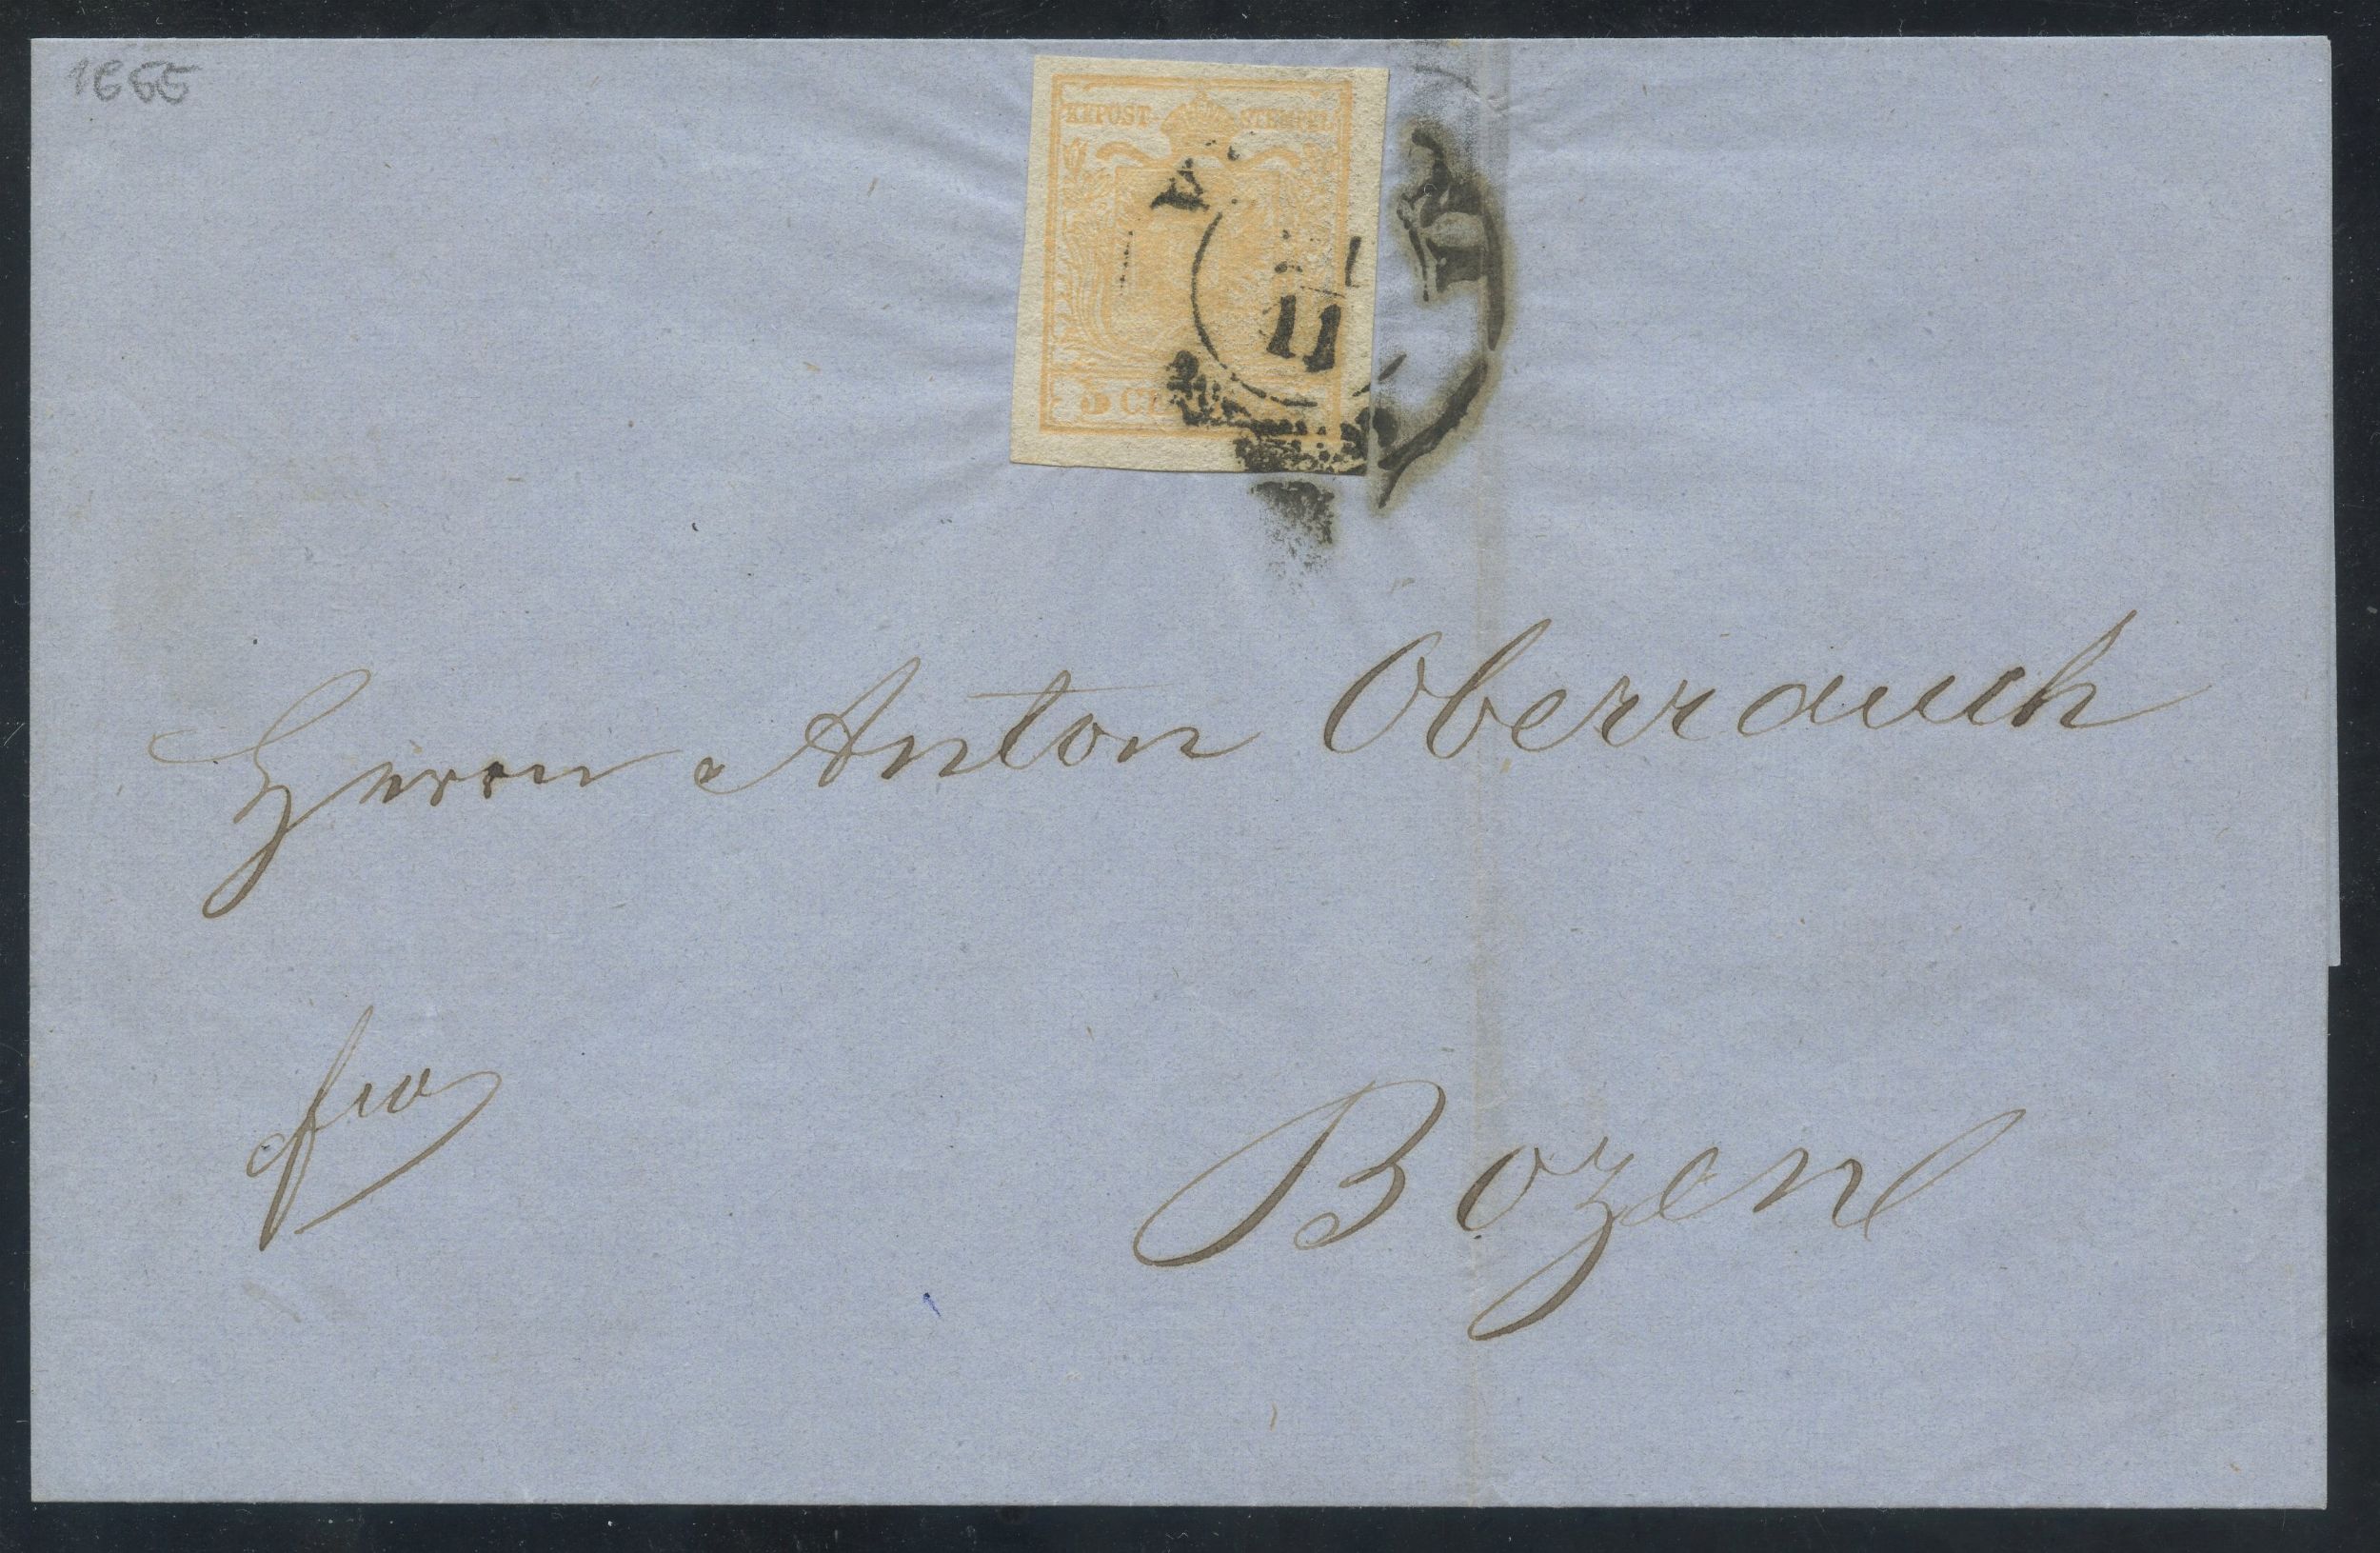 1855
KKPOST STEMPEL
11
Herrn Anton Oberrauch
fro
Bozen